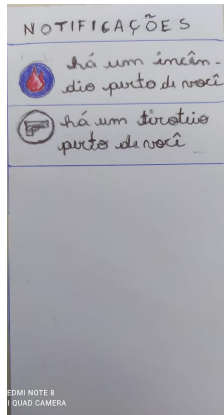 NOTIFICAÇÕES
há um incên-
dio perto de você
há um tiroteio
perto de você
EDMI NOTE 8
I QUAD CAMERA